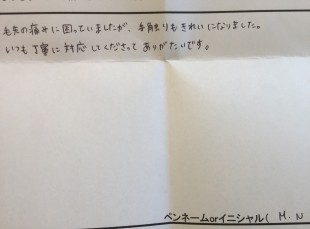 毛先の痛みに困っていましたが、手触りもきれいになりました。
いつも丁寧に対応してくださってありがたいです。
ペンネームorイニシャル( M.N